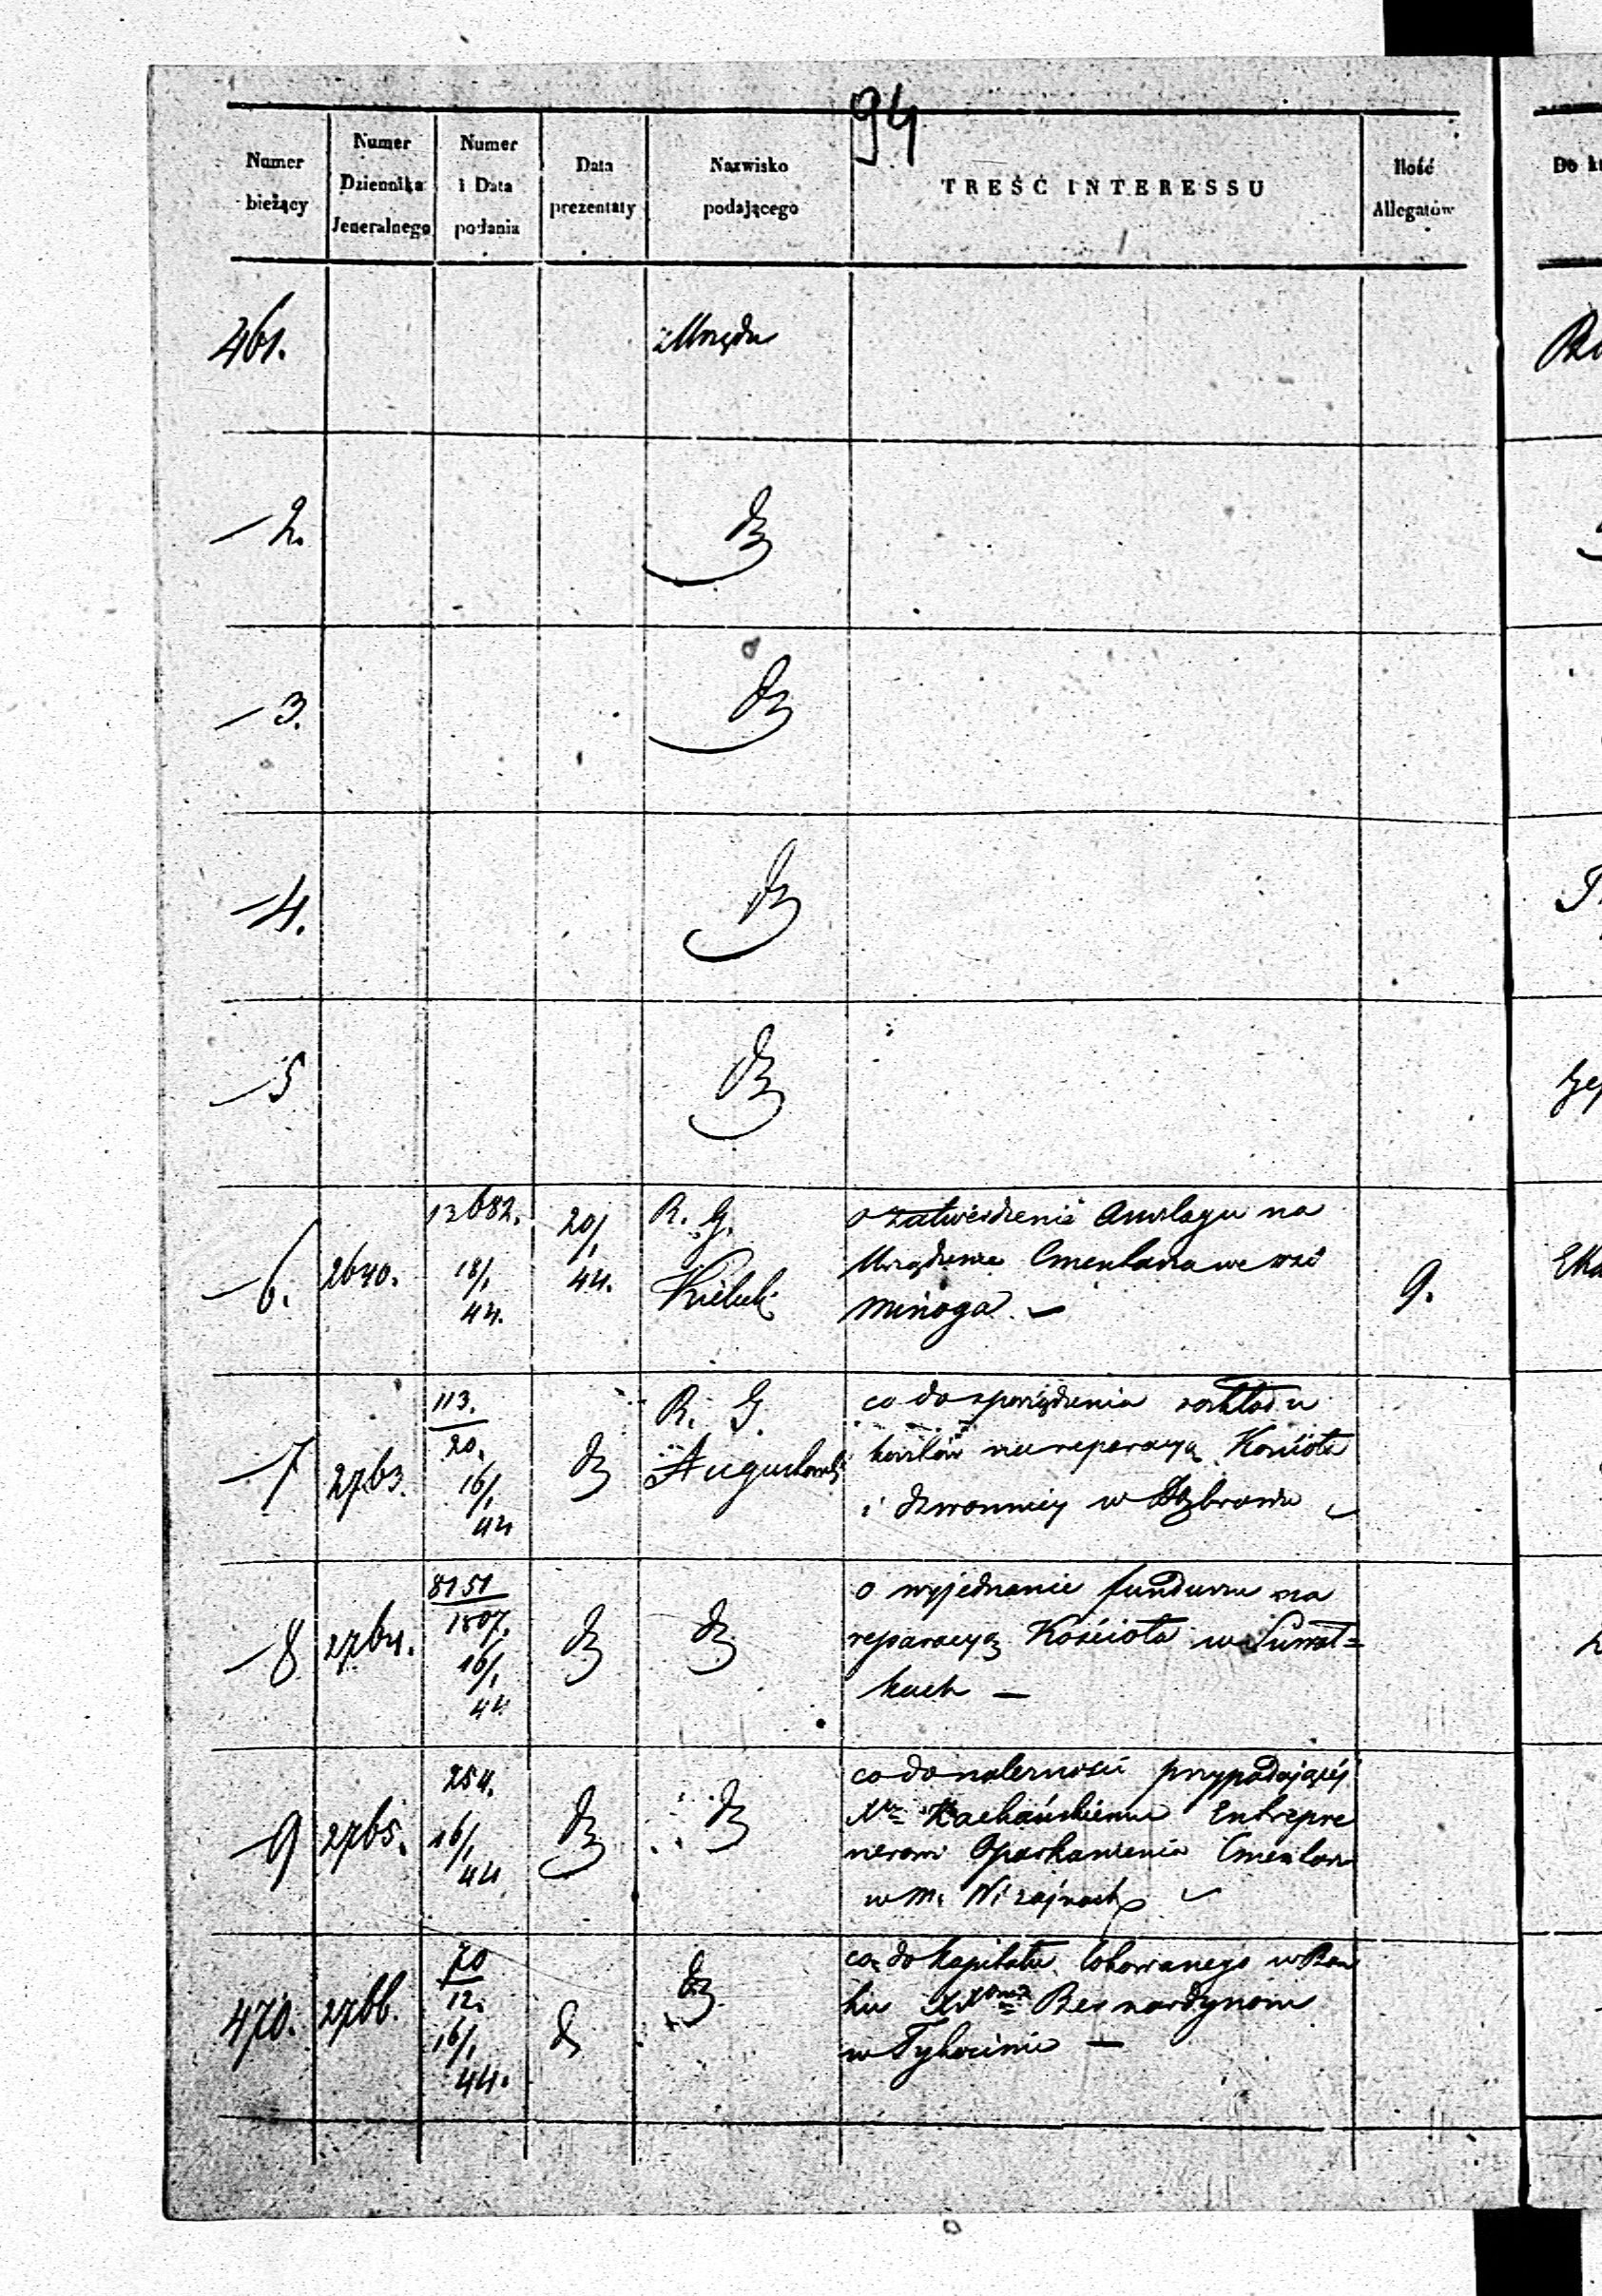 94
Numer bieżący
Numer Dziennika Jeneralnego
Numer i Data podania
Data prezentaty
Nazwisko podającego
TREŚĆ INTERESSU
Ilość Allegatów
Do
461. z Urzędu
— 2. dz
— 3. dz
— 4. dz
— 5 dz
— 6. 2640. 13682. 18/1 44. 20/1 44. R. G. Kielecki
o zatwierdzenie Anszlagu na
Urządzenie Cmentarza we wsi
Minoga. —
9.
— 7 2763. 113. 20. 16/1 44 dz R. G. Augustowski
co do sporządzenia rozkładu
kosztów na reparacyą Kościoła
i dzwonnicy w Dąbrowie
— 8 2764. 8151 1807. 16/1 44 dz dz
o wyjednanie funduszu na
reparacyą Kościoła w Suwał=
kach —
— 9 2765. 254. 16/1 44 dz dz
co do należności przypadającej
Entrepre
nerowi Oparkanienia Cmentarza
w m. Wiżajnach
470. 2766. 70 12. 16/1 44. dz dz
co do Kapitału lokowanego w Ban
ku Bernardynom
w Tykocinie —